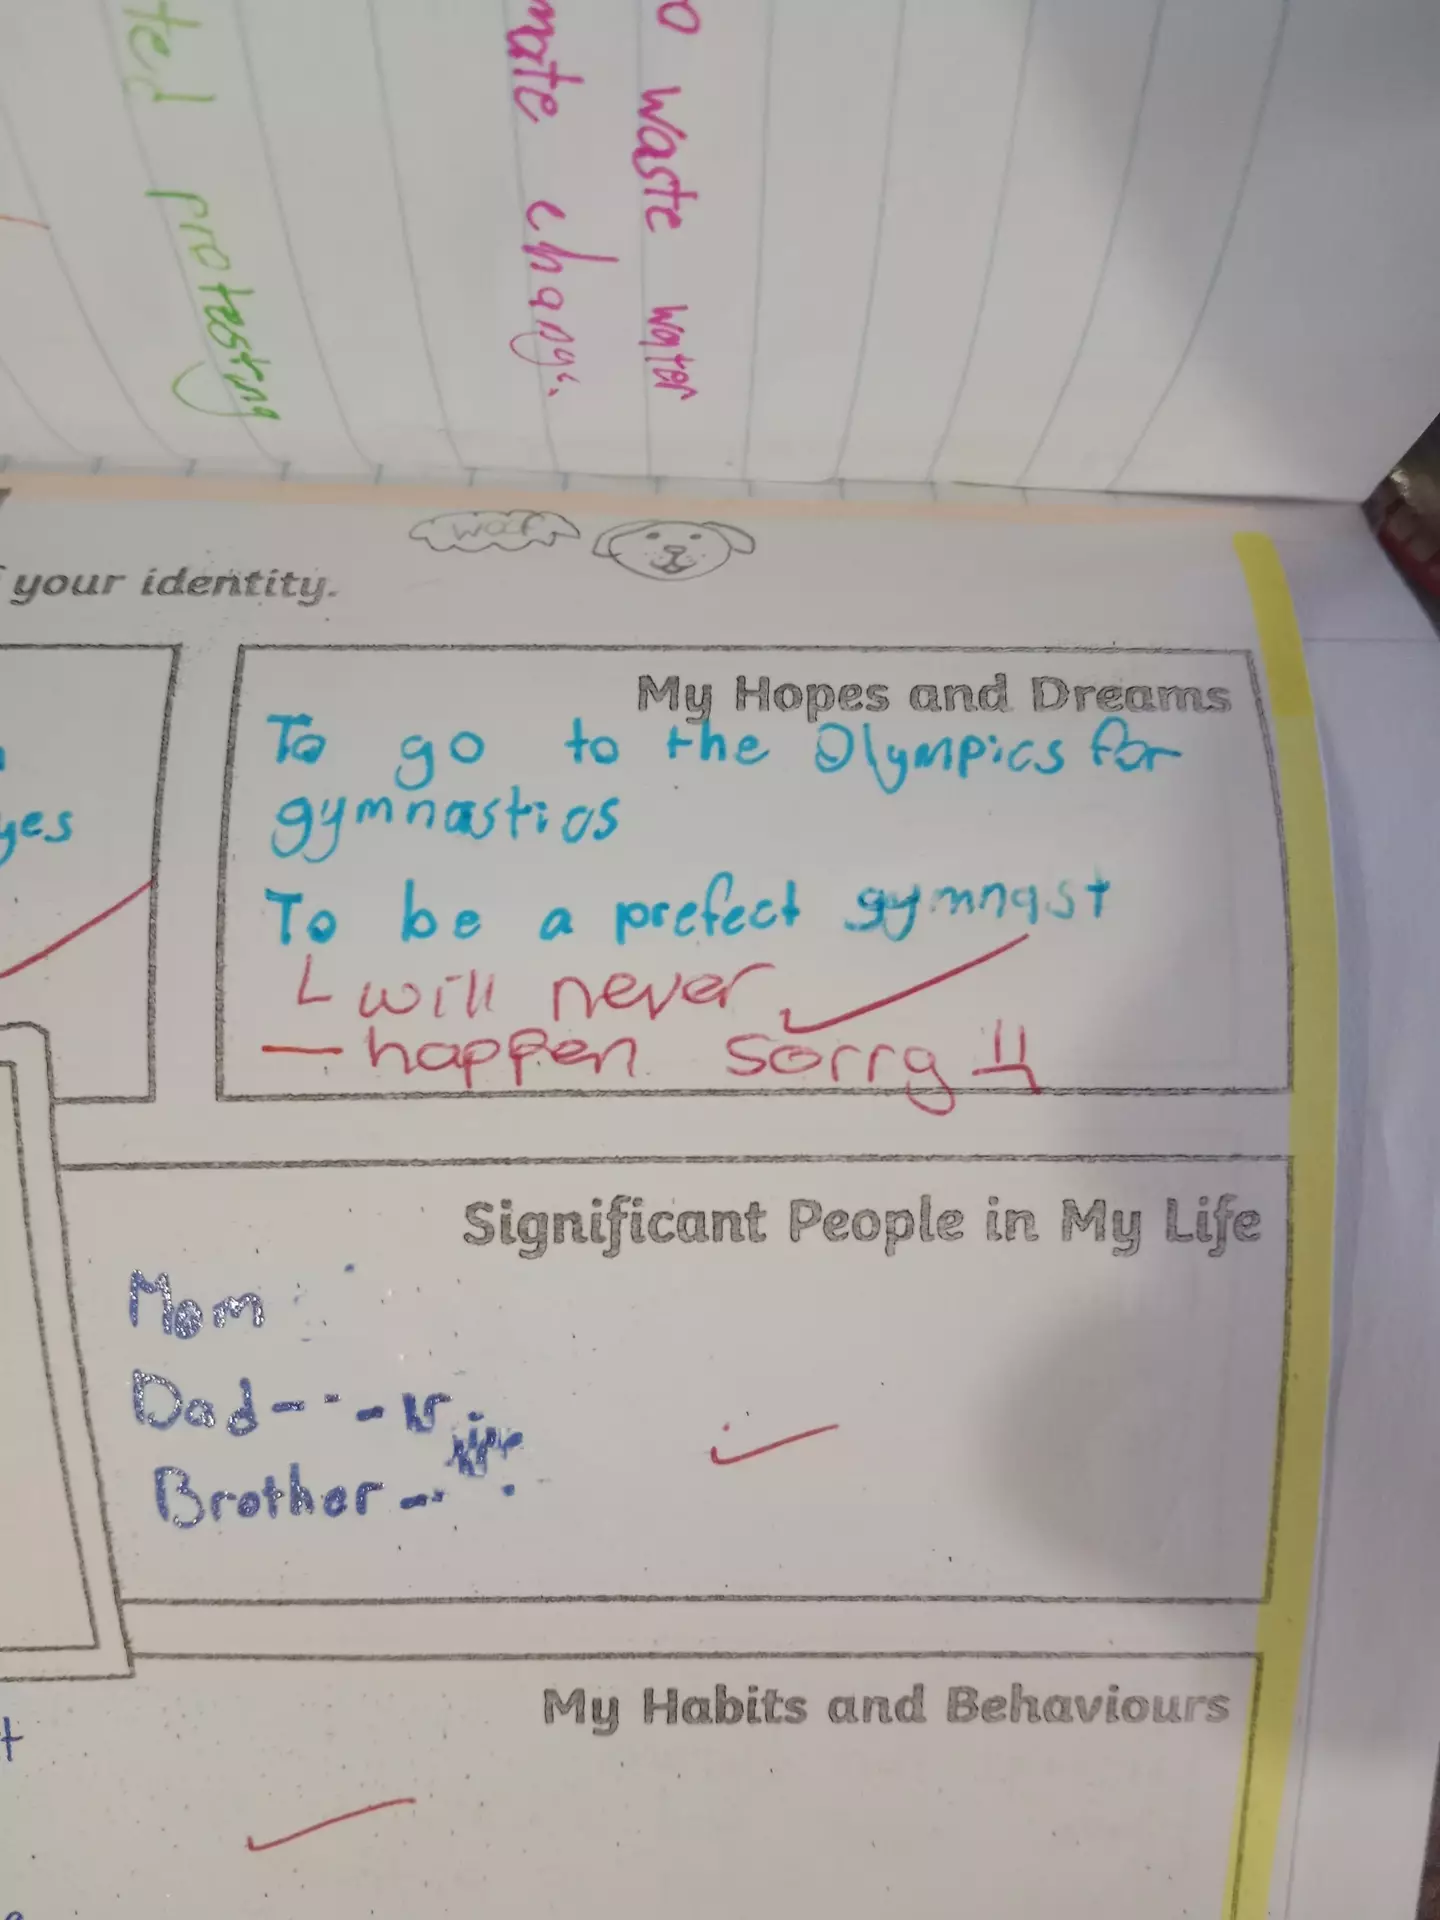 o waste water
mate change.
ted protesting
woof
your identity.
yes
My Hopes and Dreams
To go to the Olympics for
gymnastics
To be a prefect gymnast
will never
happen sorry
Significant People in My Life
Mom
Dad
Brother
My Habits and Behaviours
t